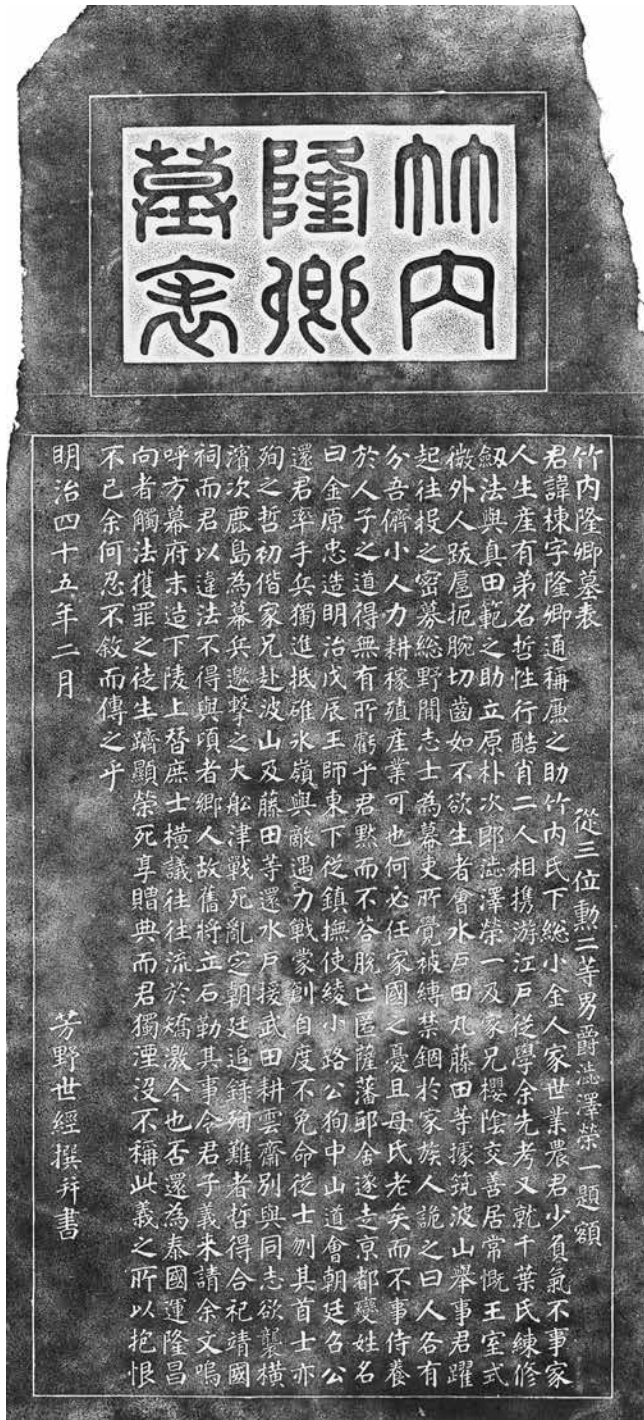 竹内
隆卿
墓表
竹内隆卿墓表
從三位勲二等男爵澁澤榮一題額
君諱棟字隆卿通稱廉之助竹内氏下総小金人家世業農君少負氣不事家
人生産有弟名哲性行酷肖二人相携游江戸從學余先考又就千葉氏練修
劔法與真田範之助立原朴次郎澁澤榮一及家兄櫻陰交善居常慨王室式
微外人跋扈扼腕切齒如不欲生者會水戸田丸藤田等據筑波山舉事君躍
起往投之密募総野間志士為幕吏所覺被縛禁錮於家族人詭之曰人各有
分吾儕小人力耕稼殖産業可也何必任家國之憂且母氏老矣而不事侍養
於人子之道得無有所虧乎君黙而不答脱亡匿薩藩邸舎遂走京都變姓名
曰金原忠造明治戊辰王師東下從鎮撫使綾小路公狥中山道會朝廷召公
還君率手兵獨進抵碓氷嶺與敵遇力戰蒙創自度不免命從士刎其首士亦
殉之哲初偕家兄赴波山及藤田等還水戸援武田耕雲齋別與同志欲襲横
濱次鹿島為幕兵邀撃之大舩津戦死亂定朝廷追録殉難者哲得合祀靖國
祠而君以違法不得與頃者郷人故舊将立石勒其事令君子義来請余文嗚
呼方幕府末造下陵上替庶士横議往往流於矯激今也否還為泰國運隆昌
向者觸法獲罪之徒生躋顯榮死享贈典而君獨湮没不稱此義之所以抱恨
不已余何忍不敘而傳之乎
明治四十五年二月
芳野世經撰并書